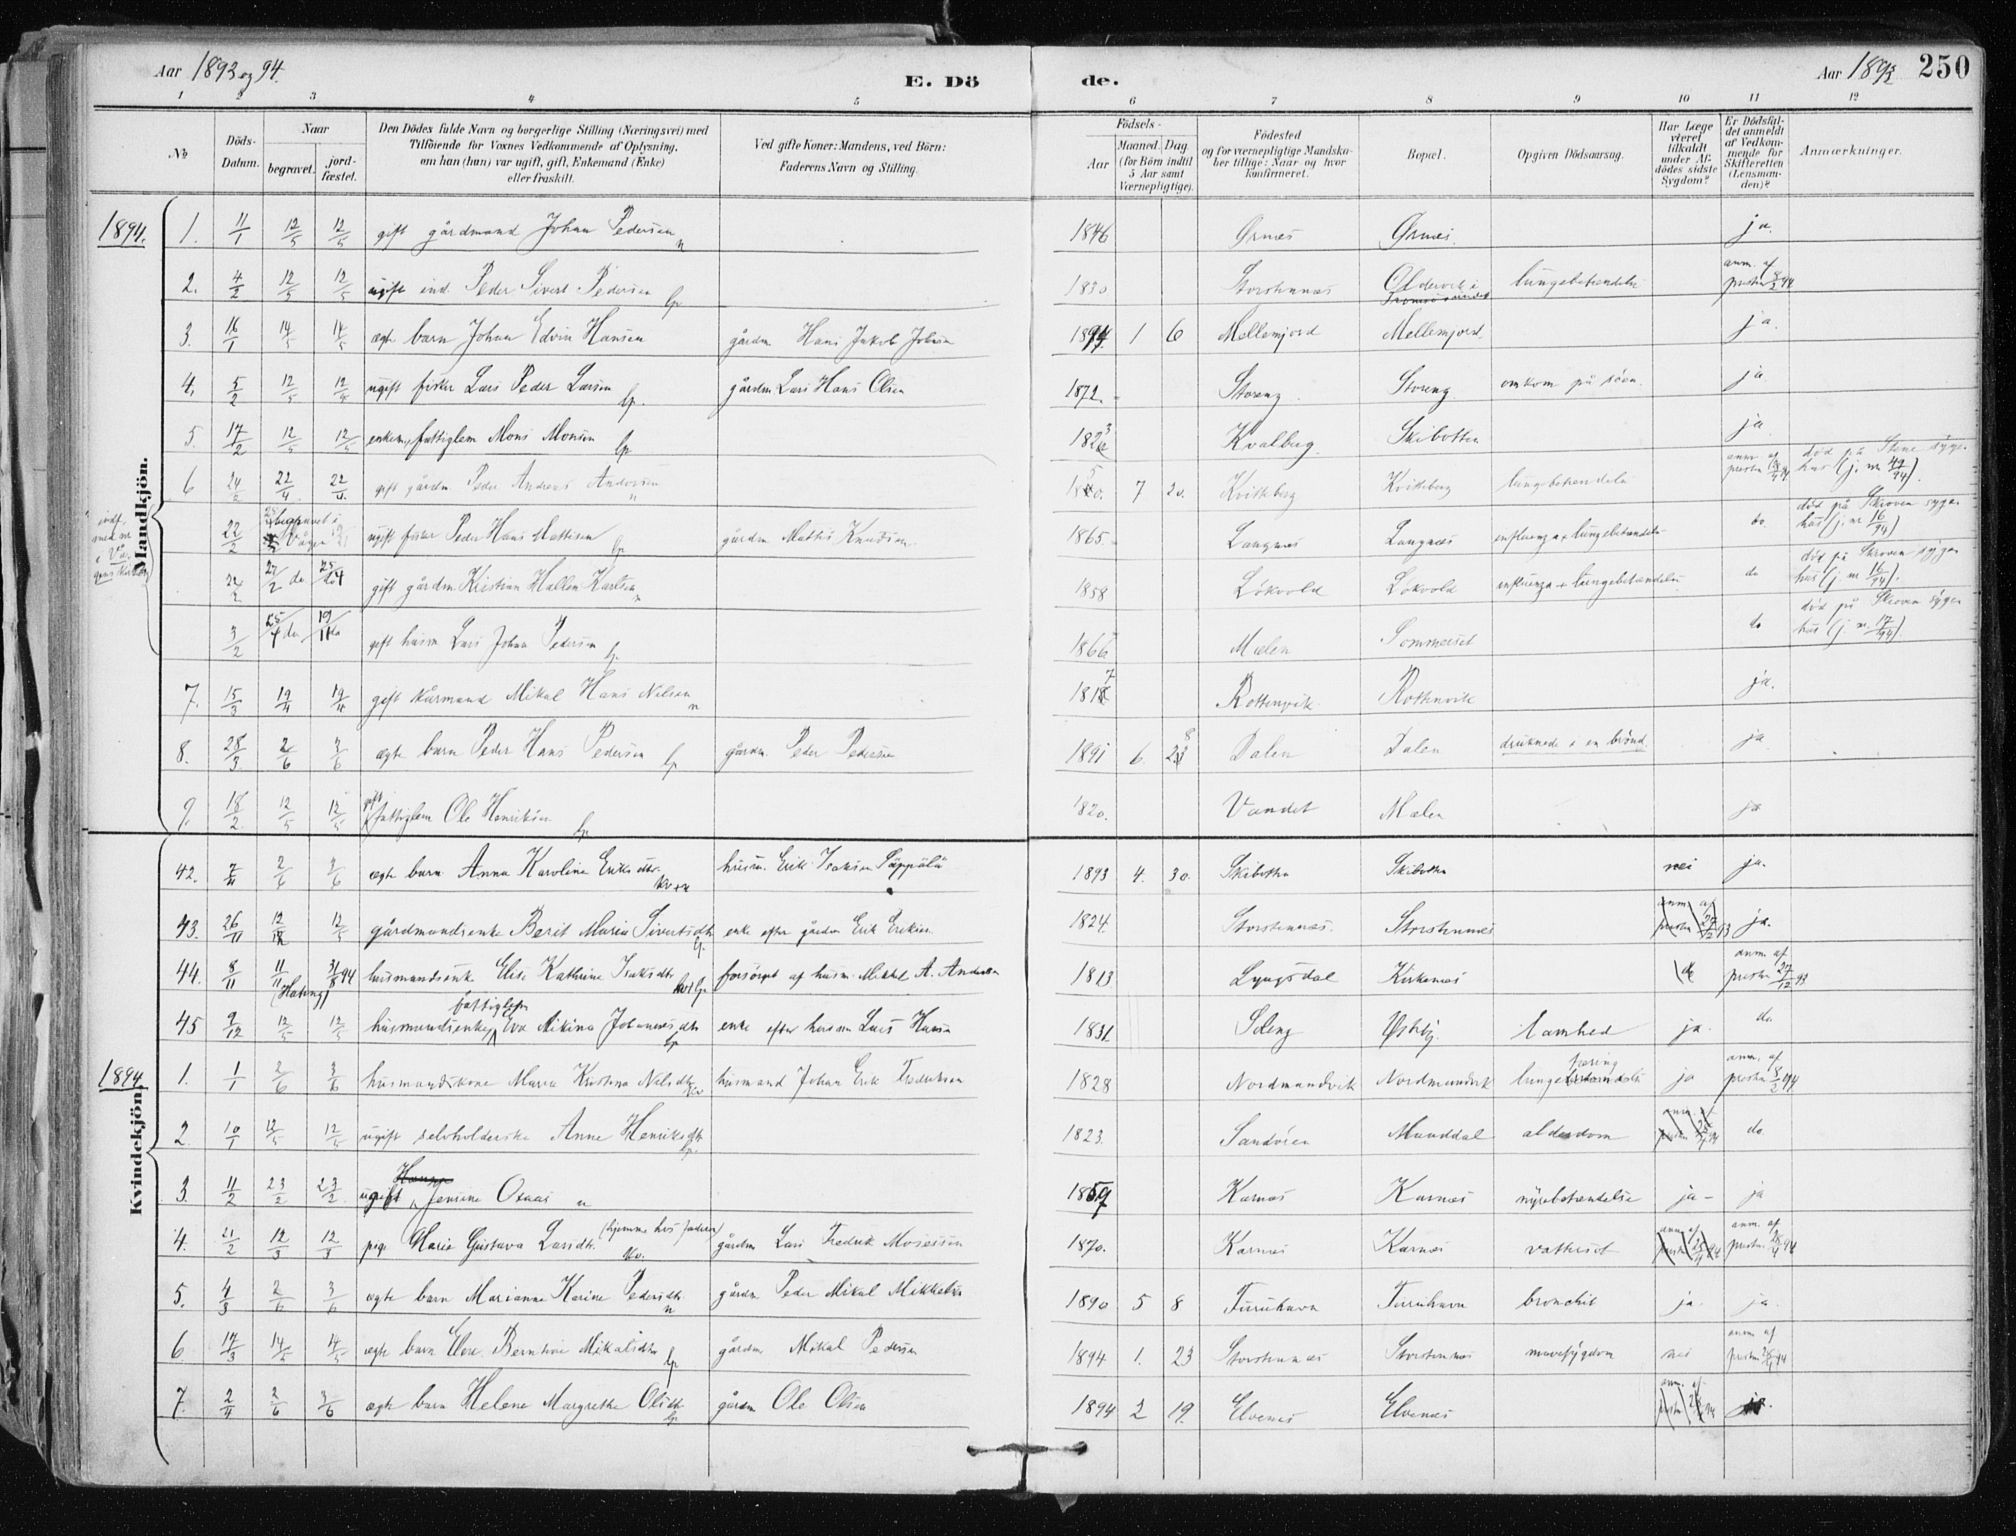 Aar 1893 og 94. E. Dö de. Aar 1893 250
1 2 3 4 5 6 7 8 9 10 11 12
No Döds-Datum. Naar begravet. jordfæstet. Den Dödes fulde Navn og borgerlige Stilling (Næringsvei) med Tilföiende for Voxnes Vedkommende af Oplysning, om han (hun) var ugift, gift, Enkemand (Enke) eller fraskilt. Ved gifte Koner: Mandens, ved Börn: Faderens Navn og Stilling. Födsels- Aar Maaned. Dag. (for Börn indtil 5 Aar samt Værnepligtige). Födested og for værnepligtige Mandskaber tillige: Naar og hvor konfirmeret. Bopæl. Opgiven Dödsaarsag. Har Læge været tilkaldt under Afdödes sidste Sygdom? Er Dödsfaldet anmeldt af Vedkommende for Skifteretten (Lensmanden)? Anmærkninger.
1894.
Mandkjön.
1. 11/1 12/5 12/5 gift gårdmand Johan Pedersen n 1846 Ornæs Ornæs. ja.
2. 4/2 12/5 12/5 ugift ind. Peder Sivert Pedersen lp. 1830 Storstennæs Oldervik i Tromsösundet lungebetændelse anm. af presten 8/2 94
3. 16/1 14/5 14/5 ægte barn Johan Edvin Hansen gårdm. Hans Jakob Johnsen 1894. 1 6 Mellemjord Mellemjord. ja.
4. 5/2 12/5 12/5 ugift fisker Lars Peder Larsen lp. gårdm Lars Hans Olsen 1872. Storeng. Storeng. omkom på söen. ja
5. 17/2 12/5 12/5 enkem, fattiglem Mons Monsen lp. 1823 Kvalberg. Skibotten ja
6 24/2 22/4 22/4. gift gårdm. Peder Andreas Andersen n 7 20. Kvitberg Kvitberg lungebetændelse anm. af presten død på Stene sygehus (j. nr 49/94).
22/2 begravet i Vågan ugift fisker Peder Hans Mathisen lp. gårdm. Mathis Knudsen. 1865. Langnæs Langnæs influenza + lungebetændelse do. död på Skroven sygehus (j. nr 16/94)
22/2 27/2 do. gift gårdm. Kristian Hallen Karlsen n 1858 Løkvold Løkvold influenza + lungebetændelse do död på Skroven sygehus (j. nr 16/94).
3/2 gift husm Lars Johan Pedersen lp. 1866 Mælen Sommerset do död på Skroven sygehus (j. nr. 17/94).
7. 15/3 19/4 19/4 gift kårmand Mikal Hans Nilsen n 1817 Rottenvik. Rottenvik ja.
8. 28/3 2/6 2/6 ægte barn Peder Hans Pedersen lp gårdm. Peder Pedersen 1891 6. 28 Dalen Dalen druknede i en brönd. ja
9. 18/2. 12/5 12/5 gift fattiglem Ole Henriksen lp 1820. Vandet Mælen ja
42. 7/11 2/6 2/6 ægte barn Anna Karoline Eriksdtr. kv.+n husm. Erik Isaksen Säppälä 1893 4. 30. Skibotten Skibotten nei ja.
43. 26/11 12/5 12/5 gårdmandsenke Berit Maria Sivertsdtr lp. enke efter gårdm Erik Eriksen. 1824. Storstennæs. Storstennæs anm. af presten 27/12 93 ja.
44. 8/11 11/11 (Hatteng) 31/8 94 husmandsenke Elise Kathrine Isaksdtr kv+lp. forsörget af husm. Mikkel A. Andersen 1813 Lyngsdal Kirkenæs do anm. af presten 27/12 93
45 9/12 12/5 12/5 husmandsenke, fattiglem Eva Mikina Johannesdtr lp enke efter husm Lars Hansen 1831. Soleng Østeby. lamhed ja. do.
1894.
Kvindekjön.
1. 1/1 2/6 2/6 husmandskone Maria Kristina Nilsdtr kv husmand Johan Erik Fredriksen 1828 Nordmandvik Nordmandvik lungetæring ja anm. af presten 8/2 94
2. 10/1 12/5 12/5 ugift selvholderske Anne Henriksdtr lp. 1823. Sandören Manddal alderdom anm. af presten do.
3. 11/2 23/2 23/2. ugift Jensine Oxaas n 1859 Karnæs Karnæs nyrebetændelse ja - ja
4. 21/2 12/3 12/3 pige Marie Gustava Larsdtr. (hjemme hos faderen) kv. gårdm Lars Fredrik Mosessen 1870. Karnæs Karnæs vattersot anm. af presten anm. af presten 94
5. 4/3 2/6 2/6 ægte barn Marianne Karine Pedersdtr n gårdm Peder Mikal Mikkelsen 1890 5 8 Furuhavn Furuhavn bronchit ja. ja.
6. 17/3 14/5 14/5 ægte barn Elen Berntine Mikalsdtr lp gårdm Mikal Pedersen 1894 1. 23 Storstennæs Storstennæs mavesygdom nei anm. af presten 94
7. 2/4 2/6 2/6 ægte barn Helene Margrethe Olsdtr lp gårdm Ole Olsen 1894 2 19. Elvenæs Elvenæs anm. af presten ja.